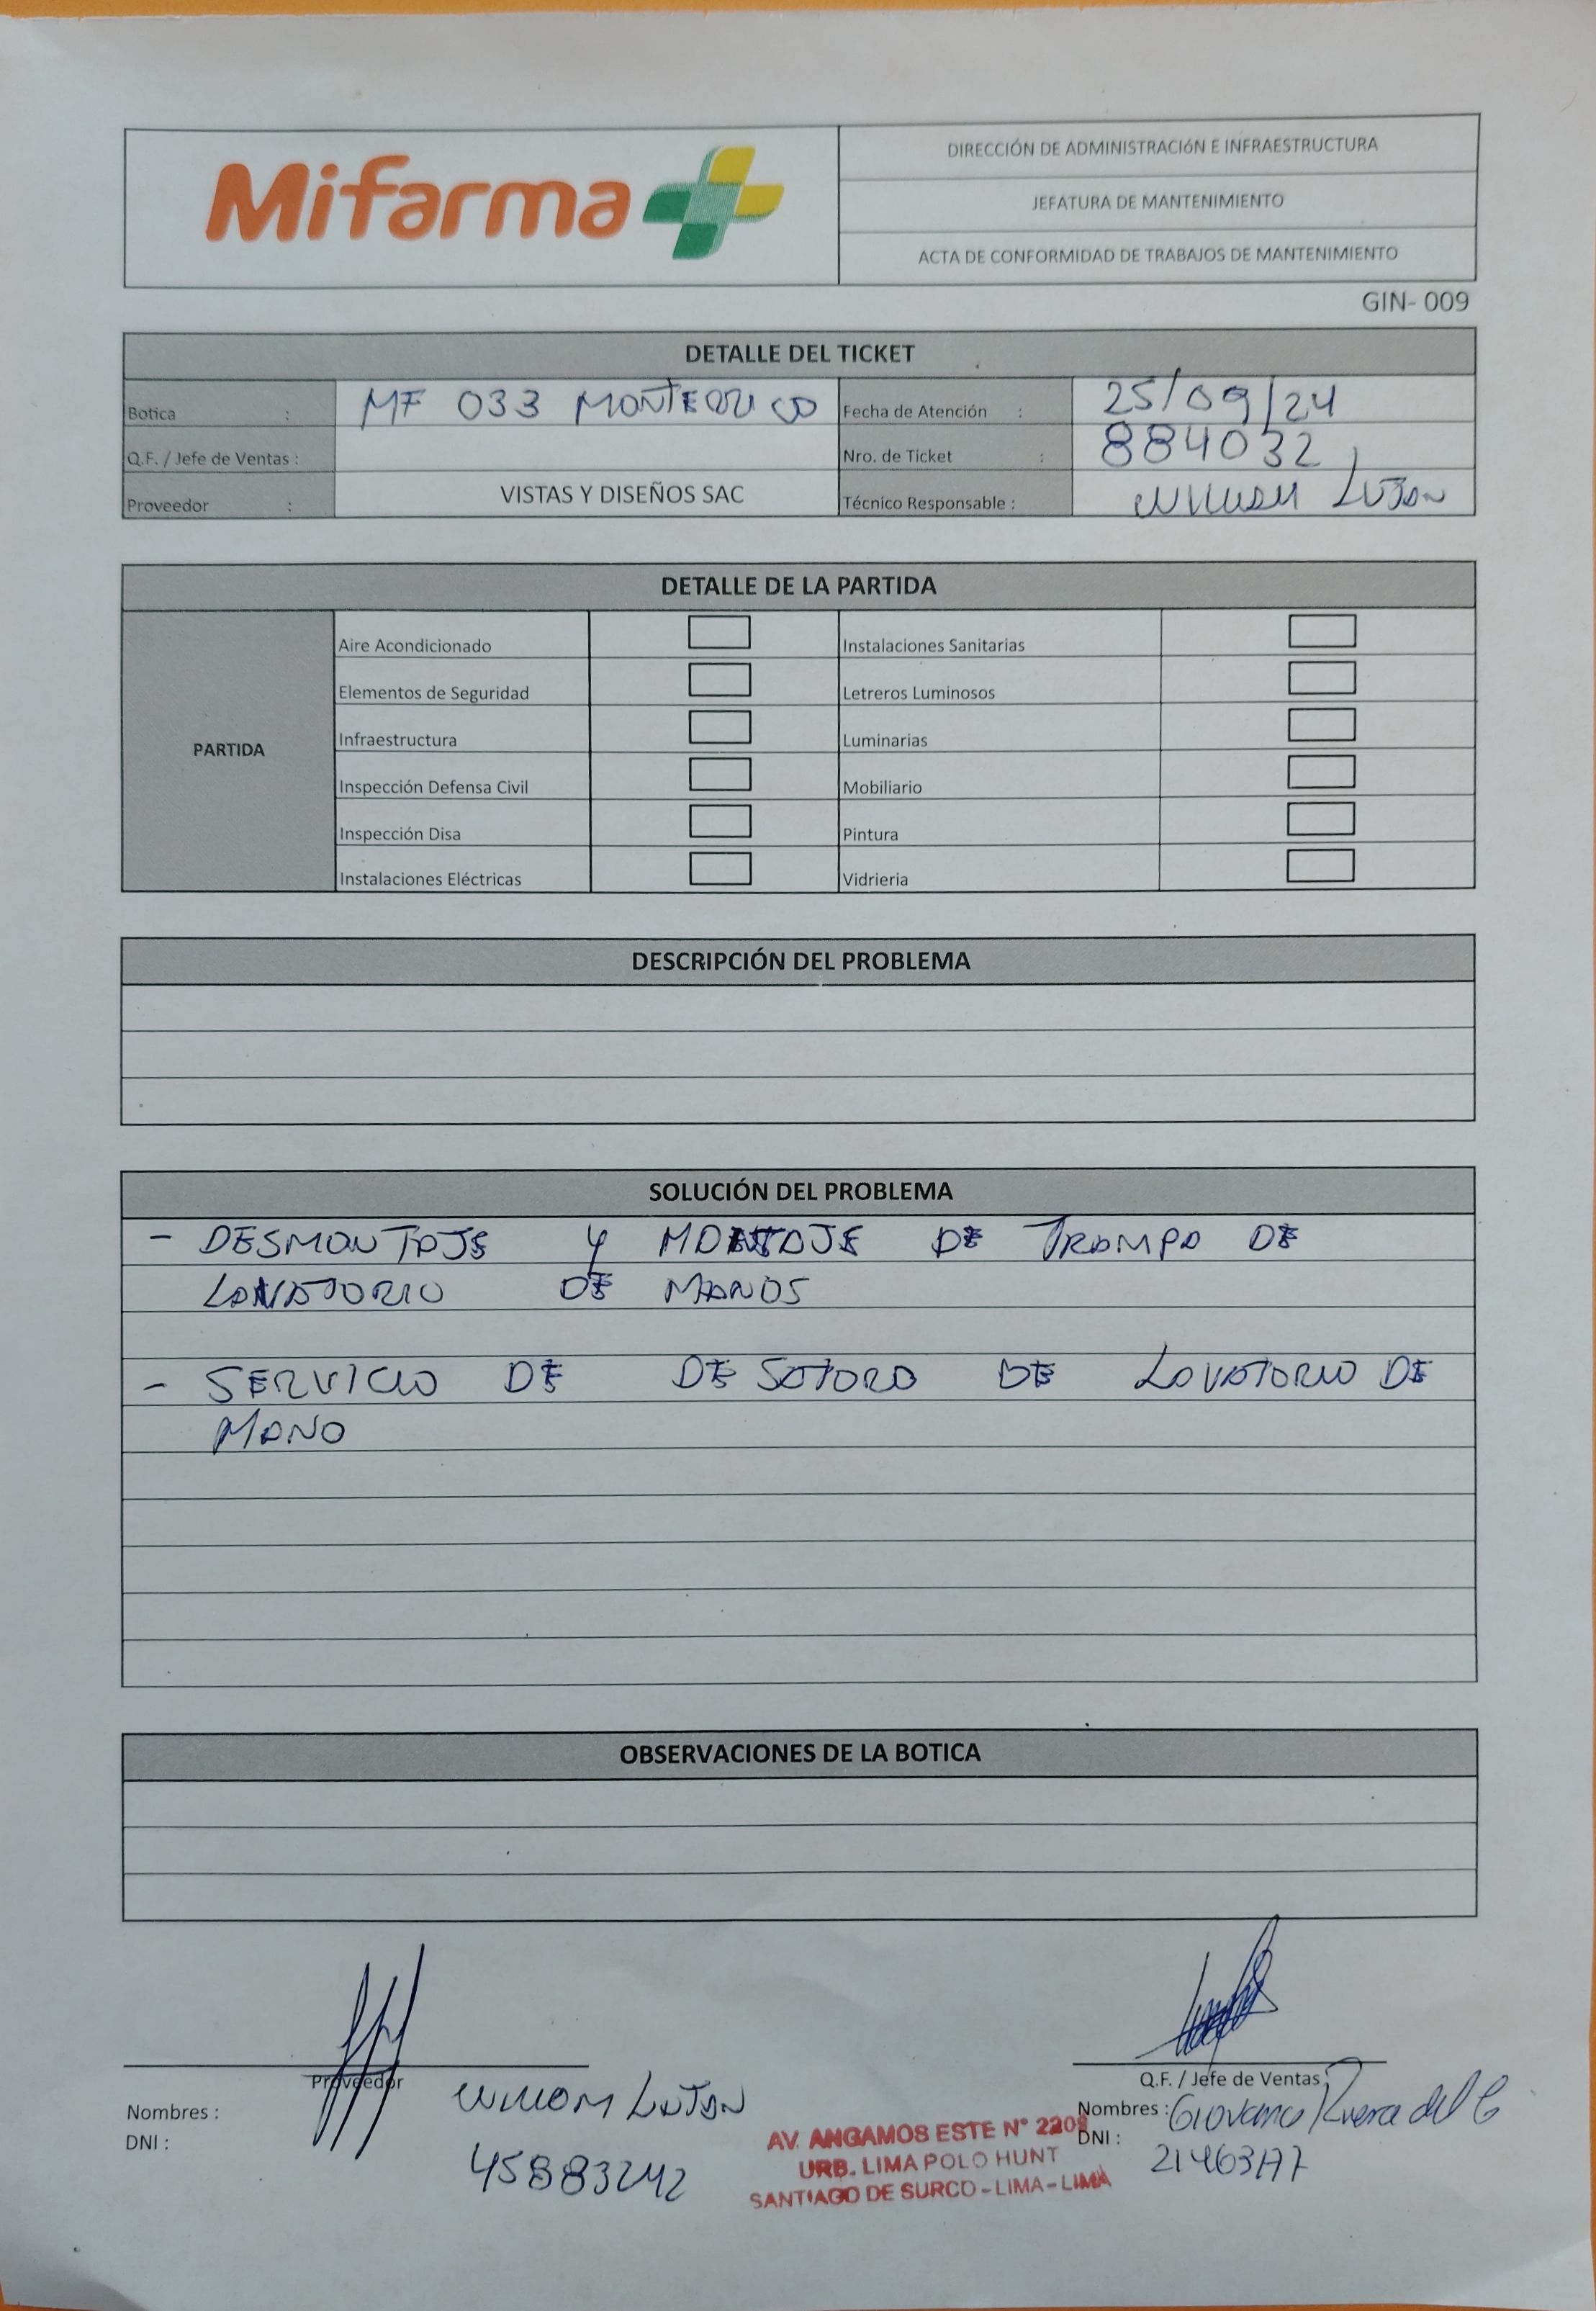 Mifarma
DIRECCIÓN DE ADMINISTRACIóN E INFRAESTRUCTURA
JEFATURA DE MANTENIMIENTO
ACTA DE CONFORMIDAD DE TRABAJOS DE MANTENIMIENTO
GIN- 009
DETALLE DEL TICKET
Botica : MF 033 MONTERRICO Fecha de Atención : 25/09/24
Q.F. / Jefe de Ventas : Nro. de Ticket : 884032
Proveedor : VISTAS Y DISEÑOS SAC Técnico Responsable : WILLIAM LUJAN
DETALLE DE LA PARTIDA
PARTIDA
Aire Acondicionado Instalaciones Sanitarias
Elementos de Seguridad Letreros Luminosos
Infraestructura Luminarias
Inspección Defensa Civil Mobiliario
Inspección Disa Pintura
Instalaciones Eléctricas Vidrieria
DESCRIPCIÓN DEL PROBLEMA
SOLUCIÓN DEL PROBLEMA
- DESMONTAJE Y MONTAJE DE TRAMPA DE
LAVATORIO DE MANOS
- SERVICIO DE DESATORO DE LAVATORIO DE
MANO
OBSERVACIONES DE LA BOTICA
Proveedor Q.F. / Jefe de Ventas
Nombres : WILLIAM LUJAN Nombres : Giovanna Rivera del
DNI : 45883242 DNI :
AV. ANGAMOS ESTE N° 2209
URB. LIMA POLO HUNT
SANTIAGO DE SURCO - LIMA - LIMA